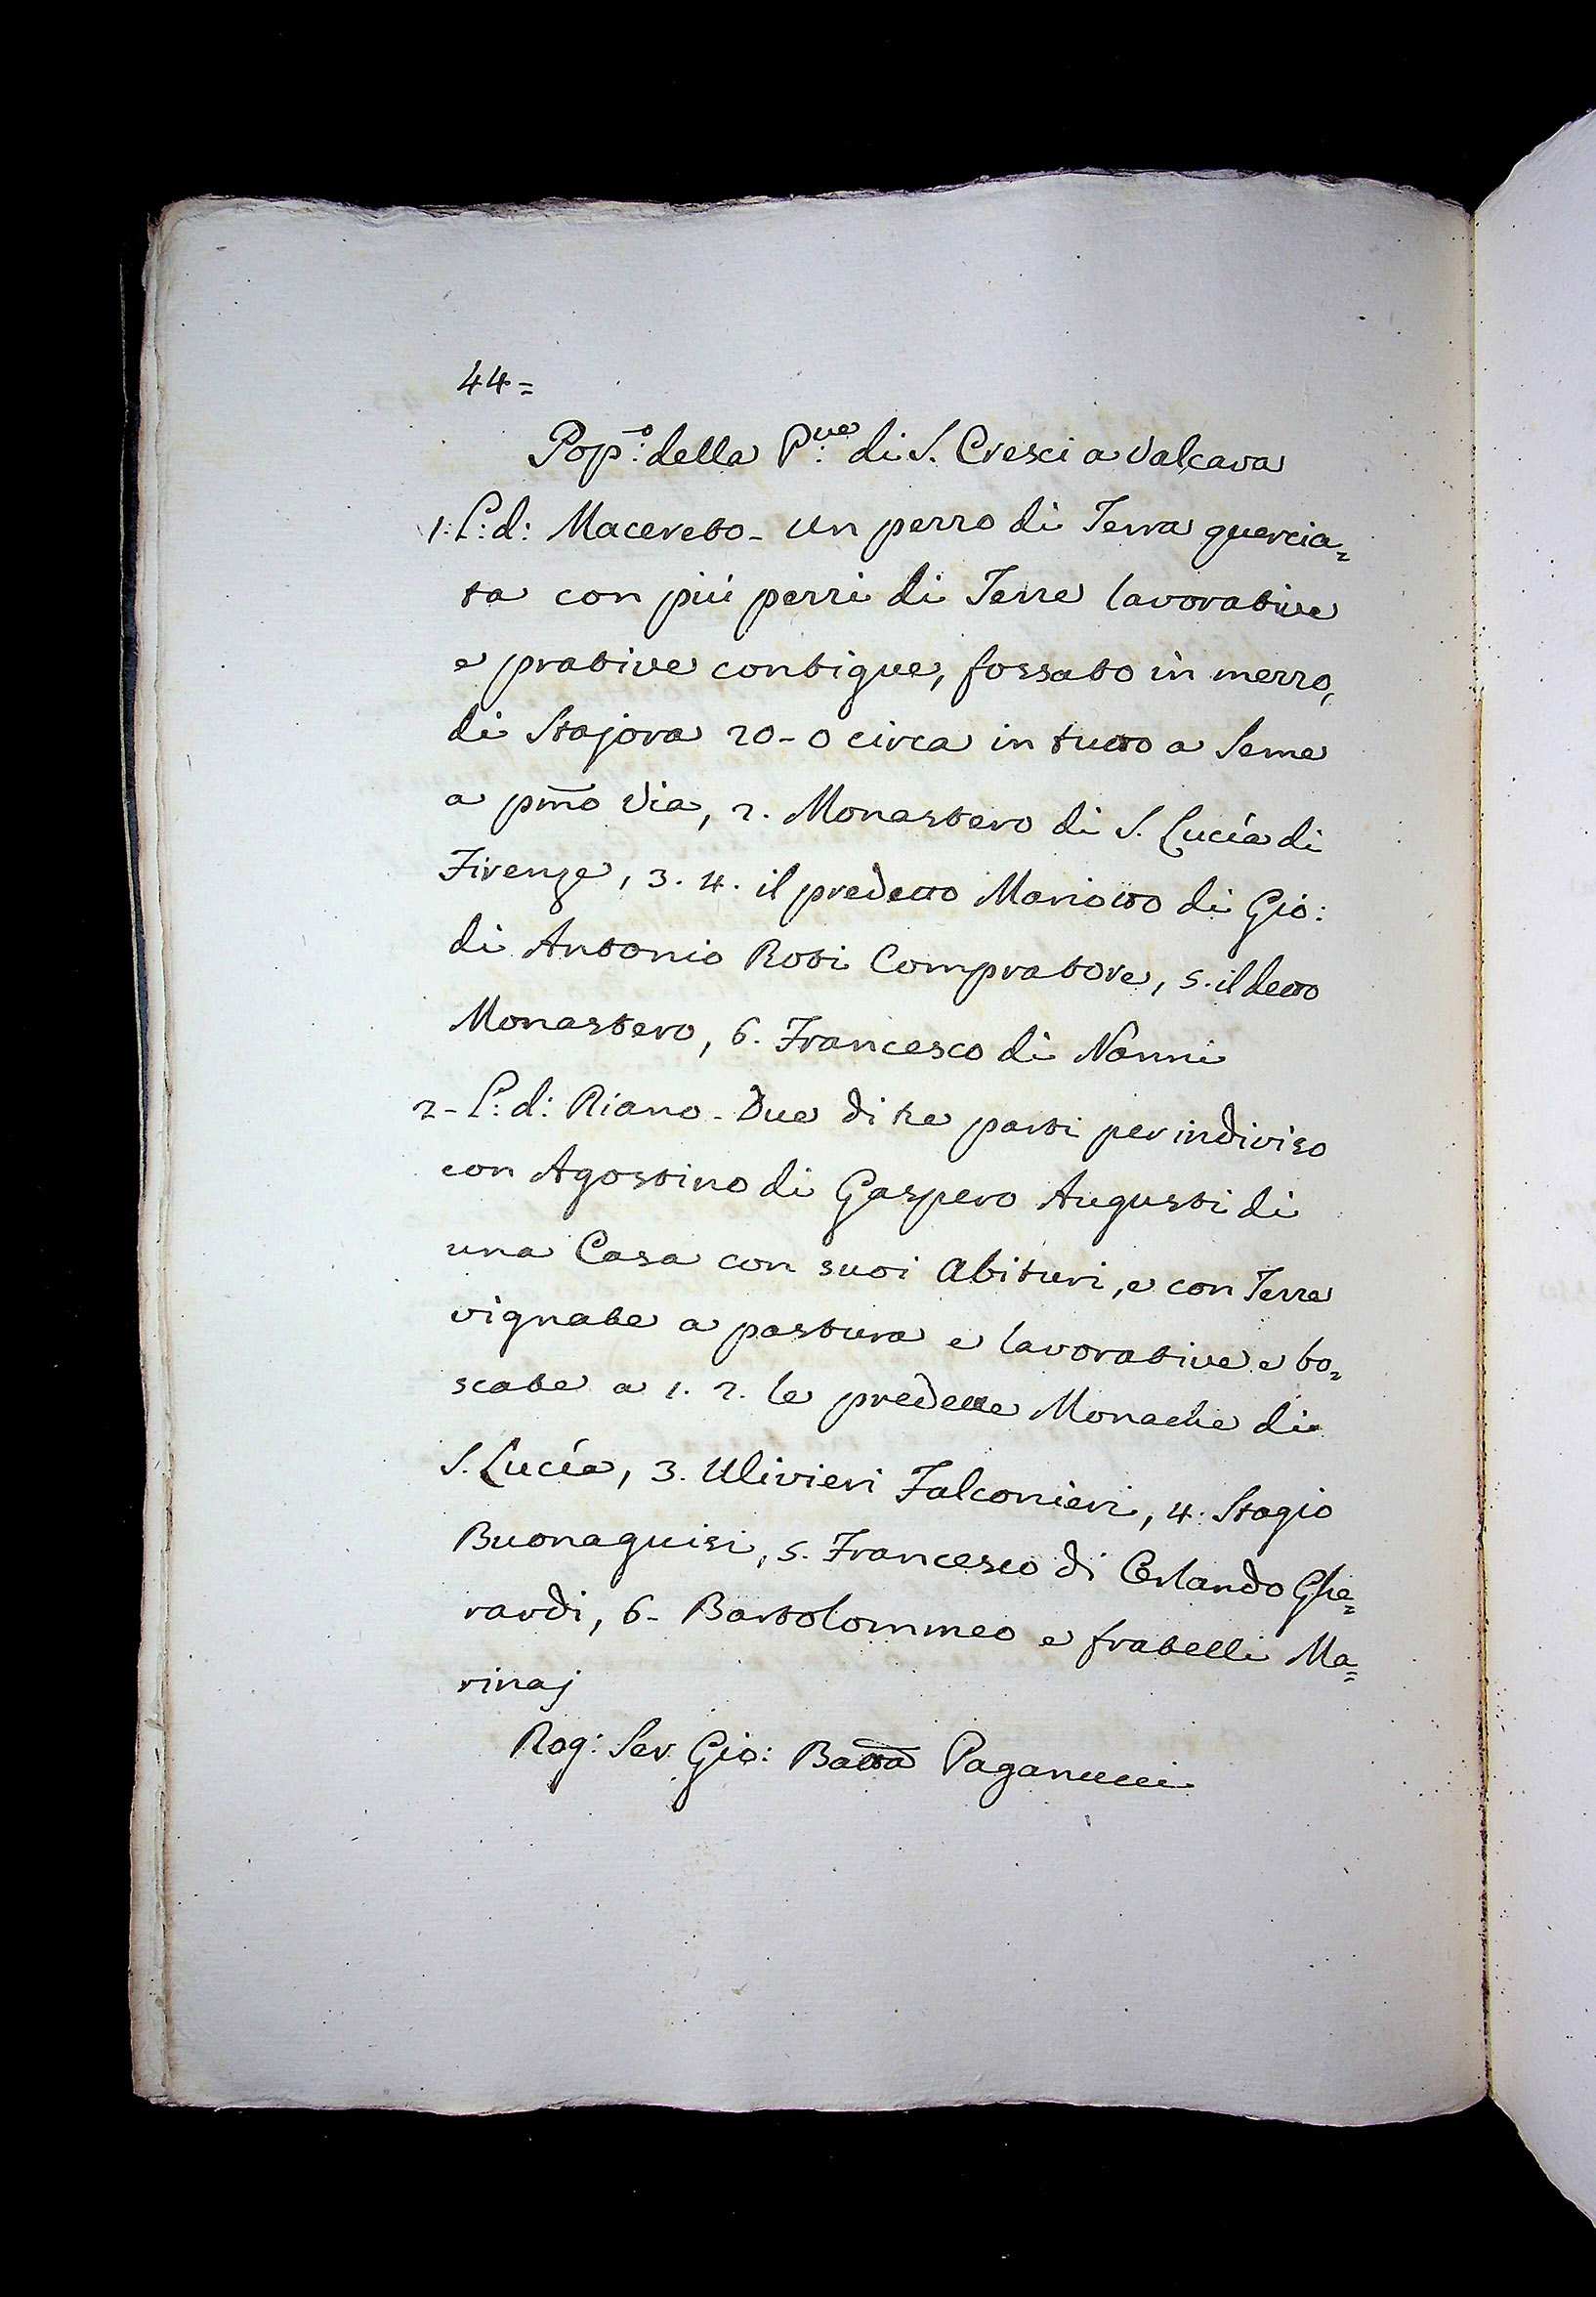 44=
Pop.º della P.ve di S. Cresci a Valcava
1. L: d: Macereto - Un pezzo di Terra quercia=
ta con più pezzi di Terre lavorative
e prative contigue, fossato in mezzo,
di Stajora 20-0 circa in tutto a Seme
a pm̃o Via, 2. Monastero di S. Lucía di
Firenze, 3. 4. il predetto Mariotto di Gio:
di Antonio Roti Compratore, 5. il detto
Monastero, 6. Francesco di Nanni
2 - L: d: Riano - Due di tre parti per indiviso
con Agostino di Gaspero Augusti di
una Casa con suoi Abituri, e con Terre
vignate a pastura e lavorative e bo=
scate a 1. 2. le predette Monache di
S. Lucía, 3. Ulivieri Falconieri, 4. Stagio
Buonaguisi, 5. Francesco di Orlando Ghe=
rardi, 6 - Bartolommeo e fratelli Ma=
rinaj
Rog: Ser Gio: Batta Paganucci